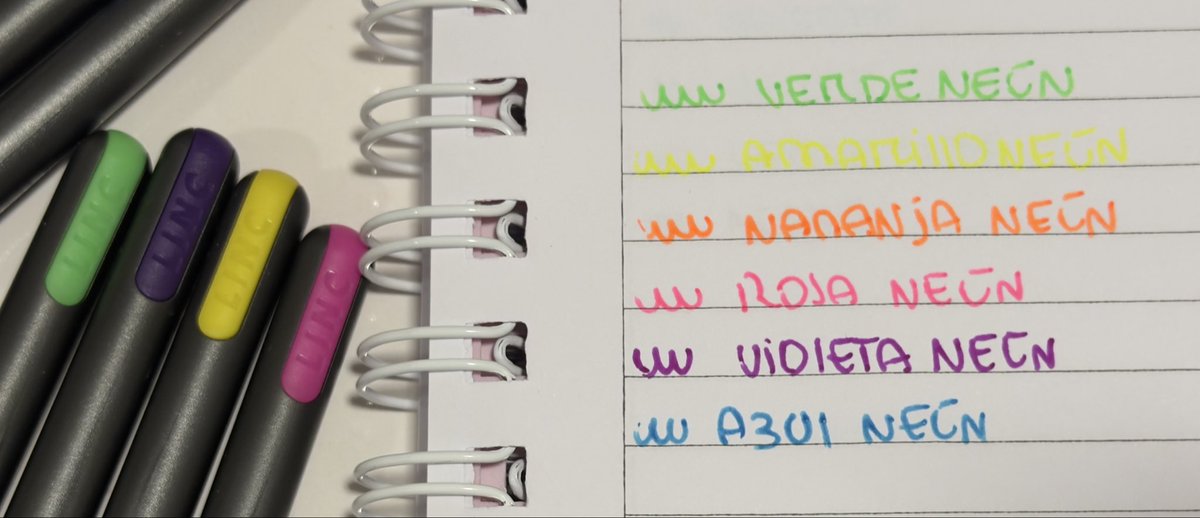 LINC
LINC
LINC
LINC
VERDE NEÓN
AMARILLO NEÓN
NARANJA NEÓN
ROSA NEÓN
VIOLETA NEÓN
AZUL NEÓN